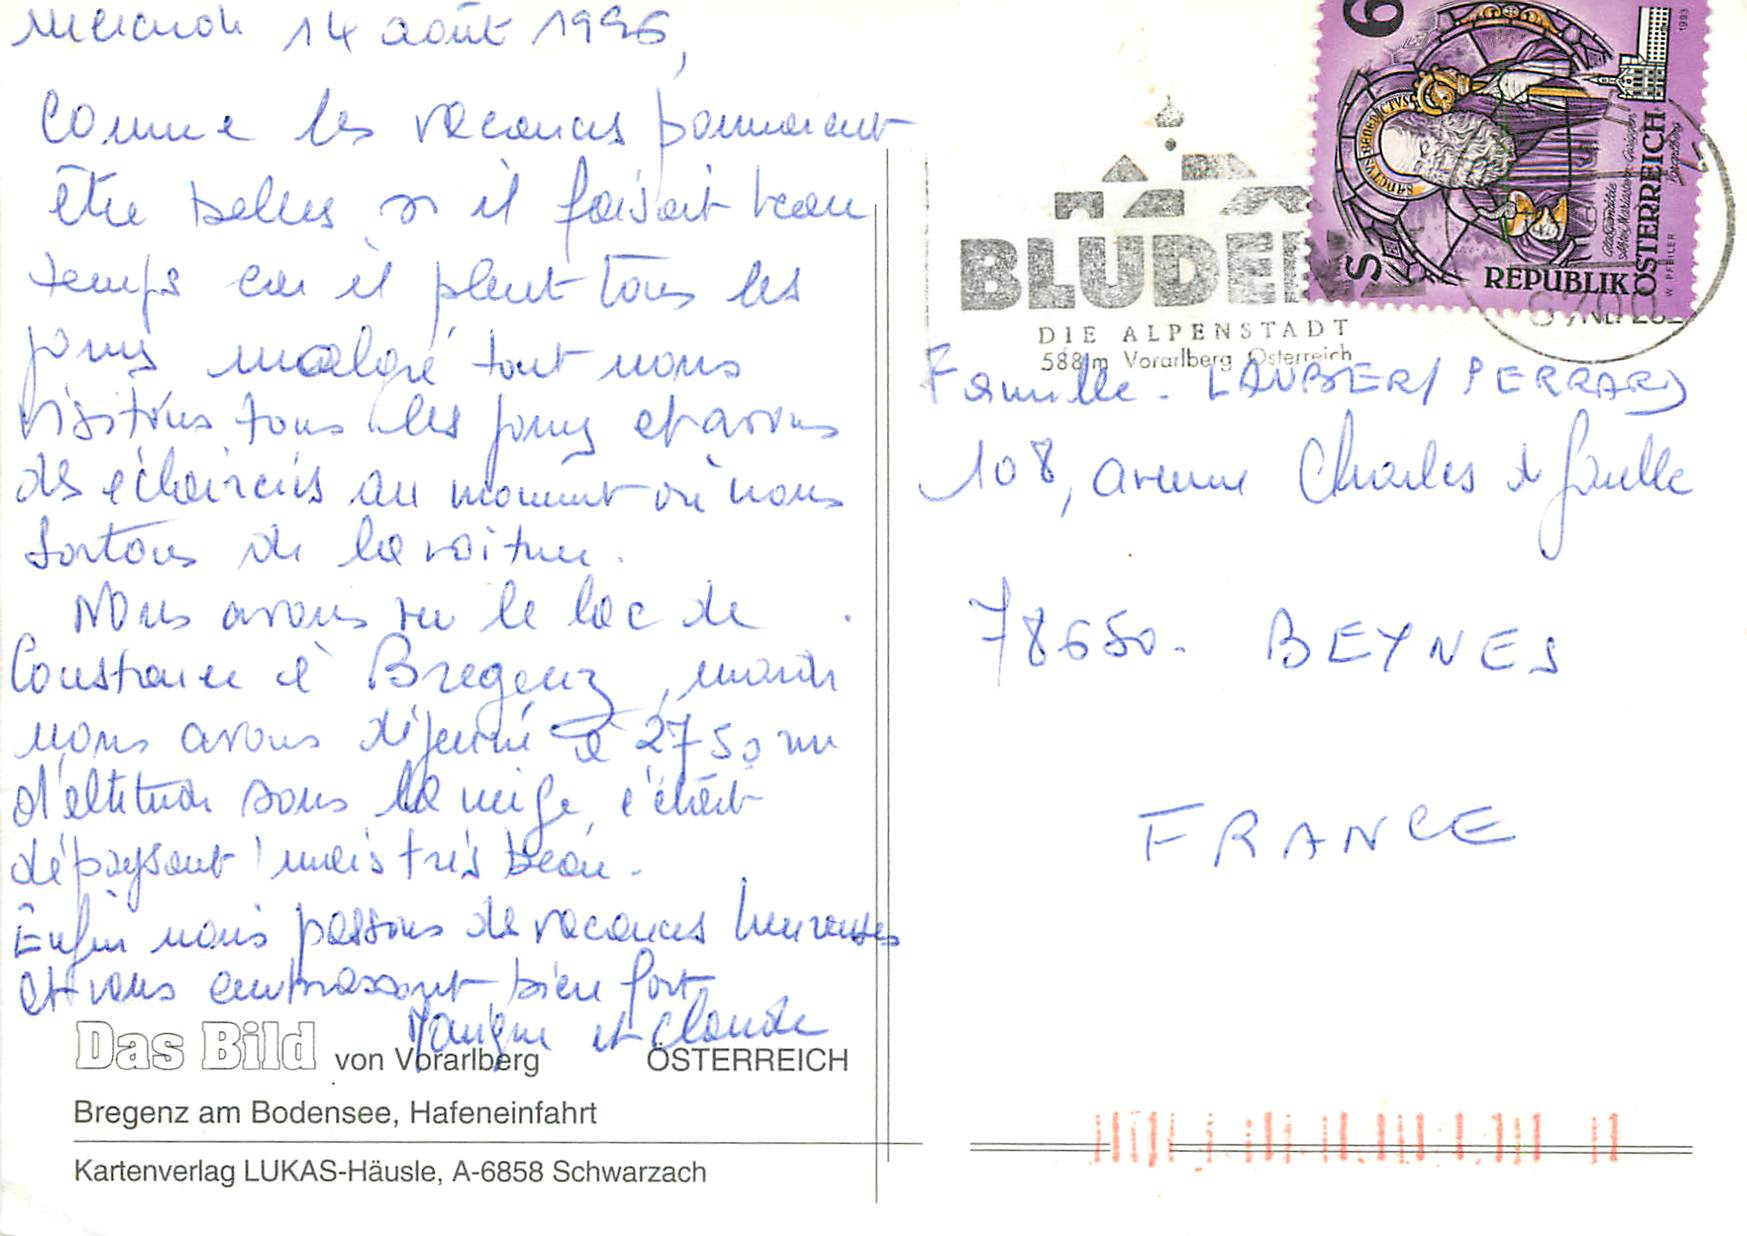 Mercredi 14 août 1996,
Comme les vacances pourraient
être belles si il faisait beau
temps car il pleut tous les
jours malgré tout nous
visitons tous les jours et avons
des éclaircies au moment où nous
sortons de la voiture.
Nous avons vu le lac de
Constance à Bregenz, mardi
nous avons déjeuné à 2750 m
d'altitude sous la neige, c'était
dépaysant ! mais très beau.
Enfin nous passons de vacances heureuses
et vous embrassont bien fort
et Claude
Das Bild von Vorarlberg ÖSTERREICH
Bregenz am Bodensee, Hafeneinfahrt
Kartenverlag LUKAS-Häusle, A-6858 Schwarzach
6 S
SANCTVS BENEDICTVS
REPUBLIK ÖSTERREICH
W. PFEILER
1993
BLUDEN
DIE ALPENSTADT
588m Vorarlberg Österreich
6700
Famille. LAUBER/PERRARD
108, avenue Charles d Gaulle
78650. BEYNES
FRANCE